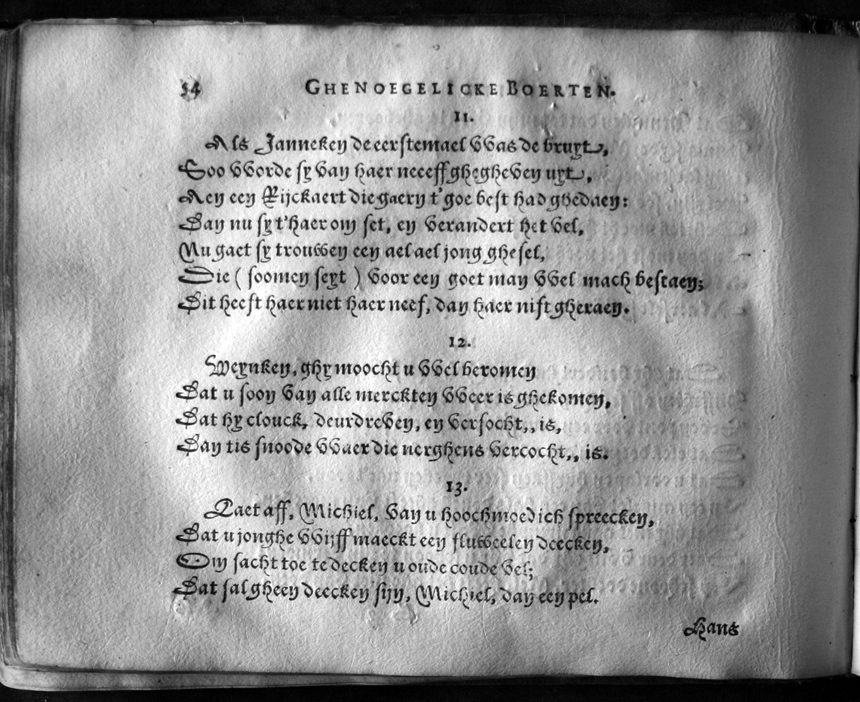 54 GHENOEGELICKE BOERTEN.
11.
Als Janneken de eerstemael VVas de bruyt,
Soo VVorde sy van haer neeeff ghegheven uyt,
Aen een Rijckaert die gaern t'goe best had ghedaen:
Dan nu sy t'haer om set, en verandert het vel,
Nu gaet sy trouwen een ael ael jong ghesel,
Die ( soomen seyt ) voor een goet man VVel mach bestaen;
Dit heeft haer niet haer neef, dan haer nift gheraen.
12.
Weynken, ghy moocht u VVel beromen
Dat u soon van alle merckten VVeer is ghekomen,
Dat hy clouck, deurdreven, en versocht,, is,
Dan tis snoode VVaer die nerghens vercocht,, is.
13.
Laet aff, Michiel, van u hoochmoedich spreecken,
Dat u jonghe VVijff maeckt een fluweelen deecken,
Om sacht toe te decken u oude coude vel;
Dat sal gheen deecken sijn, Michiel, dan een pel.
Hans